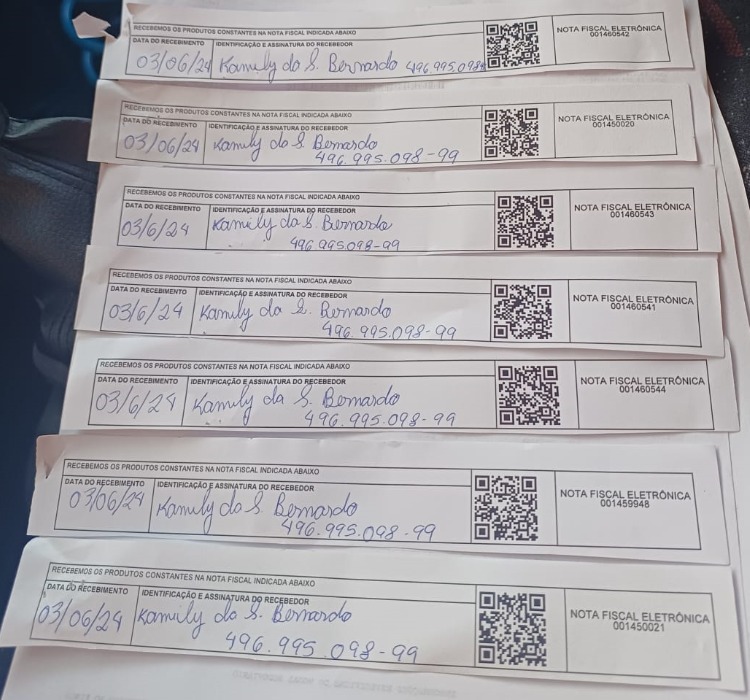 RECEBEMOS OS PRODUTOS CONSTANTES NA NOTA FISCAL INDICADA ABAIXO
DATA DO RECEBIMENTO IDENTIFICAÇÃO E ASSINATURA DO RECEBEDOR
03/06/24 Kamily da S. Bernardo 496.995.098
NOTA FISCAL ELETRÔNICA
001460542
RECEBEMOS OS PRODUTOS CONSTANTES NA NOTA FISCAL INDICADA ABAIXO
DATA DO RECEBIMENTO IDENTIFICAÇÃO E ASSINATURA DO RECEBEDOR
03/06/24 Kamily da S. Bernardo
496.995.098-99
NOTA FISCAL ELETRÔNICA
001450020
RECEBEMOS OS PRODUTOS CONSTANTES NA NOTA FISCAL INDICADA ABAIXO
DATA DO RECEBIMENTO IDENTIFICAÇÃO E ASSINATURA DO RECEBEDOR
03/6/24 Kamily da S. Bernardo
496.995.098-99
NOTA FISCAL ELETRÔNICA
001460543
RECEBEMOS OS PRODUTOS CONSTANTES NA NOTA FISCAL INDICADA ABAIXO
DATA DO RECEBIMENTO IDENTIFICAÇÃO E ASSINATURA DO RECEBEDOR
03/6/24 Kamily da S. Bernardo
496.995.098-99
NOTA FISCAL ELETRÔNICA
001460541
RECEBEMOS OS PRODUTOS CONSTANTES NA NOTA FISCAL INDICADA ABAIXO
DATA DO RECEBIMENTO IDENTIFICAÇÃO E ASSINATURA DO RECEBEDOR
03/6/24 Kamily da S. Bernardo
496.995.098-99
NOTA FISCAL ELETRÔNICA
001460544
RECEBEMOS OS PRODUTOS CONSTANTES NA NOTA FISCAL INDICADA ABAIXO
DATA DO RECEBIMENTO IDENTIFICAÇÃO E ASSINATURA DO RECEBEDOR
03/06/24 Kamily da S. Bernardo
496.995.098-99
NOTA FISCAL ELETRÔNICA
001459948
RECEBEMOS OS PRODUTOS CONSTANTES NA NOTA FISCAL INDICADA ABAIXO
DATA DO RECEBIMENTO IDENTIFICAÇÃO E ASSINATURA DO RECEBEDOR
03/06/24 Kamily da S. Bernardo
496.995.098-99
NOTA FISCAL ELETRÔNICA
001450021